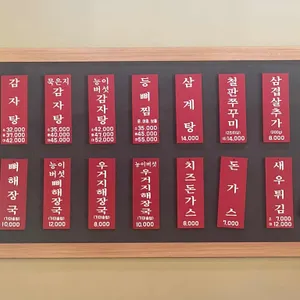 감자탕
小 32.000
中 37.000
大 42.000
묵은지 감자탕
小 35.000
中 40.000
大 45.000
능이버섯 감자탕
小 42.000
中 47.000
大 52.000
등뼈찜
小 35.000
中 45.000
大 55.000
삼계탕
14.000
철판쭈꾸미
14.000
삼겹살추가
8.000
뼈해장국
10.000
능이버섯 뼈해장국
12.000
우거지해장국
8.000
능이버섯 우거지해장국
10.000
치즈돈가스
8.000
돈가스
7.000
새우튀김
小 7.000
大 12.000